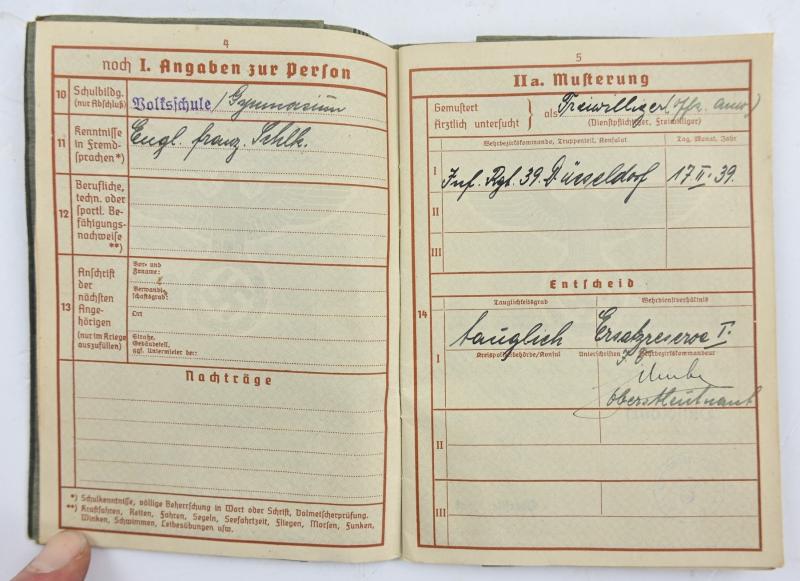 4
noch I. Angaben zur Person
10
Schulbildg.
(nur Abschluß)
Volksschule / Gymnasium
11
Kenntnisse
in Fremd-
sprachen*)
Engl. franz. Schlk.
12
Berufliche,
techn. oder
sportl. Be-
fähigungs-
nachweise
**)
13
Anschrift
der
nächsten
Ange-
hörigen
(nur im Kriege
auszufüllen)
Vor- und
Zuname:
Verwandt-
schaftsgrad:
Ort
Straße,
Gebäudeteil,
ggf. Untermieter bei:
Nachträge
*) Schulkenntnisse, völlige Beherrschung in Wort oder Schrift, Dolmetscherprüfung.
**) Kraftfahren, Reiten, Fahren, Segeln, Seefahrtzeit, Fliegen, Morsen, Funken,
Winken, Schwimmen, Leibesübungen usw.
5
IIa. Musterung
Gemustert
Ärztlich untersucht
als Freiwilliger
(Dienstpflichtiger, Freiwilliger)
Wehrbezirkskommando, Truppenteil, Konsulat
Tag, Monat, Jahr
I
Inf. Rgt. 39. Düsseldorf
17 II. 39.
II
III
Entscheid
14
Tauglichkeitsgrad
Wehrdienstverhältnis
tauglich
Ersatzreserve I.
I
Kreispolizeibehörde/Konsul
Unterschriften
Wehrbezirkskommandeur
Oberstleutnant
II
III